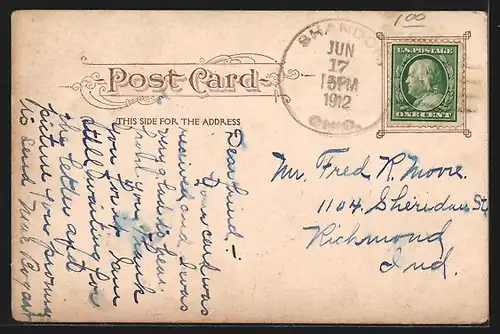 1.00
SHANDON
JUN
17
5PM
1912
OHIO.
U.S. POSTAGE
ONE CENT
POST CARD
THIS SIDE FOR THE ADDRESS
Dear Friend:-
Your card was
received and I was
very glad to hear
from you. Thank
you for it. I am
still waiting for
the letter and
picture you
to send
Mr. Fred R. Moore.
1104 Sheridan St.
Richmond
Ind.